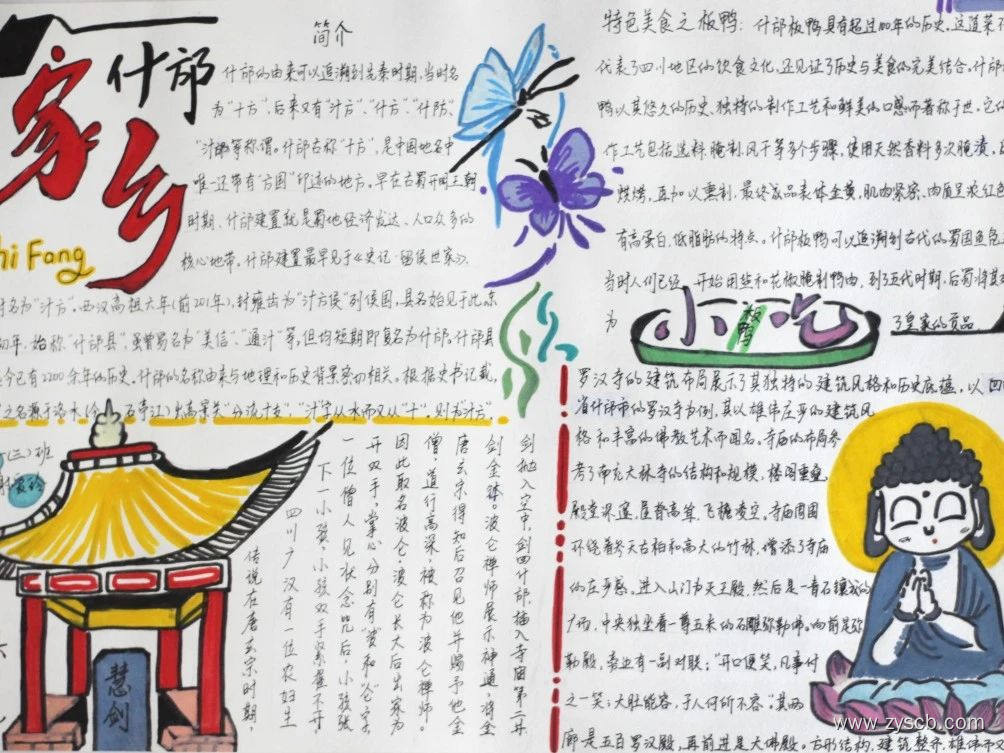 家乡
什邡
hi Fang
简介
什邡的由来可以追溯到先秦时期,当时名
为"十方",后来又有"汁方"、"什方"、"什防"、
等称谓。什邡古称"十方",是中国地名中
唯一还带有"方国"印迹的地方。早在古蜀开明王朝
时期,什邡建置就是蜀地经济发达、人口众多的
核心地带。什邡建置最早见于《史记·留侯世家》,
时名为"汁方"。西汉高祖六年(前201年),封雍齿为"汁方侯"列侯国,县名始见于此。
年,始称"什邡县",虽曾易名为"美信"、"通计"等,但均短期即复名为什邡。什邡县
今已有2200余年的历史。什邡的名称由来与地理和历史背景密切相关。根据史书记载,
之名源于洛水(今石亭江)出高景关"分流十支","汁字从水而又从"十",则为"汁方"
特色美食之板鸭:什邡板鸭具有超过100年的历史。这道菜不
代表了四川地区的饮食文化,还见证了历史与美食的完美结合。什邡
鸭以其悠久的历史、独特的制作工艺和鲜美的口感而著称于世。它
作工艺包括选料、腌制、风干等多个步骤,使用天然香料多次腌渍,
烘烤,再加以熏制,最终成品表体金黄,肌肉紧密,肉质呈淡红色
有高蛋白,低脂肪的特点。什邡板鸭可以追溯到古代的蜀国鱼凫
当时人们已经 开始用盐和花椒腌制鸭肉,到了五代时期,后蜀将其
为
小吃
板鸭
了皇家的贡品
罗汉寺的建筑布局展示了其独特的建筑风格和历史底蕴,以四
省什邡市的罗汉寺为例,其以雄伟庄严的建筑风
格和丰富的佛教艺术而闻名。寺庙的布局参
考了南充大林寺的结构和规模,楼阁重叠,
殿堂深邃,屋脊高耸,飞檐凌空。寺庙周围
环绕着参天古柏和高大的竹林,增添了寺庙
的庄严感。进入山门为天王殿,然后是一青石镶成的
广场,中央独坐着一尊五米的石雕弥勒佛。向前是弥
勒殿,旁边有一副对联:"开口便笑,凡事付
之一笑;大肚能容,于人何所不容。"其两
廊是五百罗汉殿,再前进是大佛殿。方形结构,建筑整齐,雄伟
(三)班
慧剑
传说在唐玄宗时期,
四川广汉有一位农妇生
下一小孩,小孩双手紧紧不开
一位僧人见状念咒后,小孩张
开双手,掌心分别有"婆"和"仑"字,
因此取名波仑,波仑长大后出家为
僧,道行高深,被称为波仑禅师。
唐玄宗得知后召见他并赐予他金
剑金钵。波仑禅师展示神通,将金
剑抛入空中,剑四什邡,插入寺庙第二井
www.zyscb.com